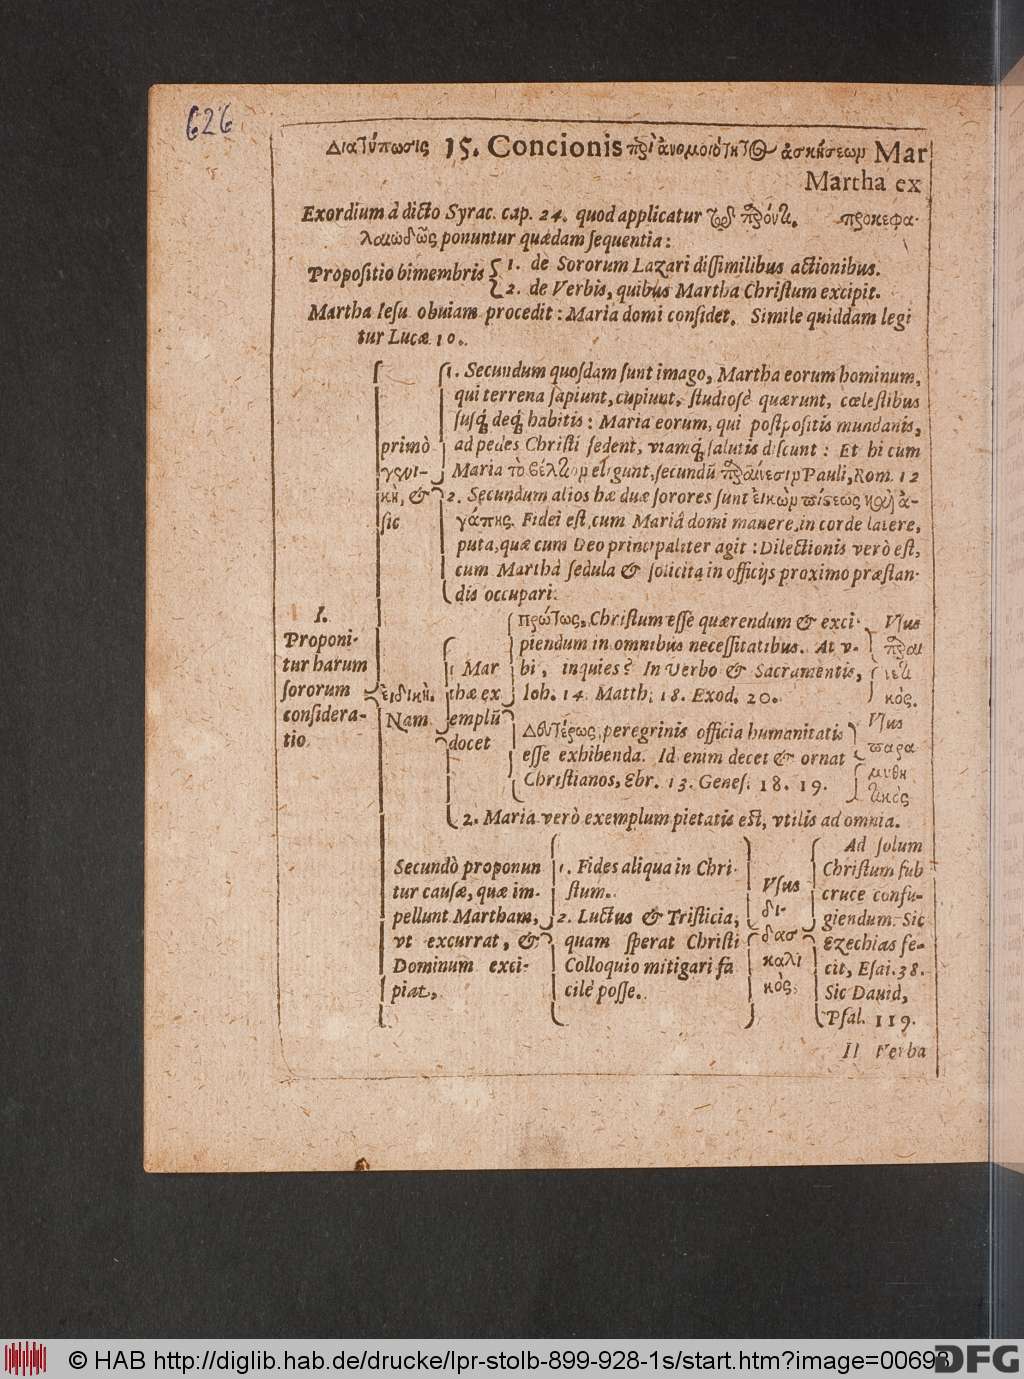 626
Διατύπωσις 15. Concionis περὶ ἀνομοιότητος ἀσκήσεων Mar
Martha ex
Exordium à dicto Syrac. cap. 24. quod applicatur πρὸς παρόντα. προκεφα-
λαιωδῶς ponuntur quædam sequentia:
Propositio bimembris
1. de Sororum Lazari dissimilibus actionibus.
2. de Verbis, quibus Martha Christum excipit.
Martha Iesu obuiam procedit: Maria domi considet. Simile quiddam legi
tur Lucæ 10.
I.
Proponi-
tur harum
sororum
considera-
tio
primò
γενι-
κὴ, &
sic
1. Secundum quosdam sunt imago, Martha eorum hominum,
qui terrena sapiunt, cupiunt, studiosè quærunt, cœlestibus
susq́ deq́ habitis: Maria eorum, qui postpositis mundanis,
ad pedes Christi sedent, viamq́ salutis discunt: Et hi cum
Maria eligunt, secundũ παραίνεσιν Pauli, Rom. 12
2. Secundum alios hæ duæ sorores sunt εἰκὼν πίστεως καὶ ἀ-
γάπης. Fidei est, cum Mariâ domi manere, in corde latere,
puta, quæ cum Deo principaliter agit: Dilectionis verò est,
cum Marthâ sedula & solicita in officijs proximo præstan-
dis occupari.
εἰδικὴ.
Nam
1 Mar
thæ ex
emplũ
docet
Πρώτως, Christum esse quærendum & exci-
piendum in omnibus necessitatibus. At v-
bi, inquies? In Verbo & Sacramentis,
Ioh. 14. Matth. 18. Exod. 20.
Vsus
παραι
νετι
κός.
Δευτέρως, peregrinis officia humanitatis
esse exhibenda. Id enim decet & ornat
Christianos, Ebr. 13. Genes. 18. 19.
Vsus
παρα
μυθη
τικὸς
2. Maria verò exemplum pietatis est, vtilis ad omnia.
Secundò proponun
tur causæ, quæ im-
pellunt Martham,
vt excurrat, &
Dominum exci-
piat,
1. Fides aliqua in Chri-
stum.
2. Luctus & Tristicia,
quam sperat Christi
Colloquio mitigari fa
cilè posse.
Vsus
δι-
δασ
καλι
κὸς.
Ad solum
Christum sub
cruce confu-
giendum. Sic
Ezechias fe-
cit, Esai. 38.
Sic Dauid,
Psal. 119.
II Verba
© HAB http://diglib.hab.de/drucke/lpr-stolb-899-928-1s/start.htm?image=00693
DFG